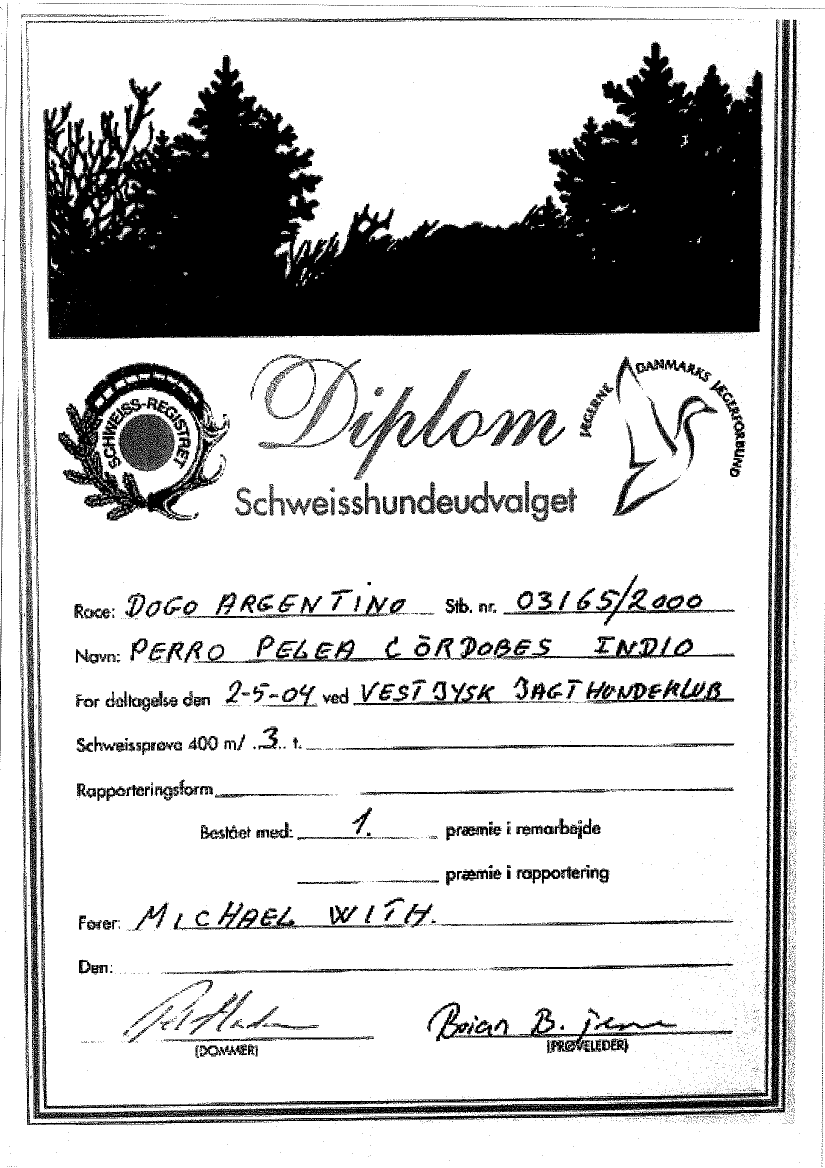 SCHWEISS-REGISTRET
Diplom
JÆGERNE DANMARKS JÆGERFORBUND
Schweisshundeudvalget
Race: DOGO ARGENTINO Stb. nr. 03165/2000
Navn: PERRO PELEA CÖRDOBES INDIO
For deltagelse den 2-5-04 ved VESTJYSK JAGTHUNDEKLUB
Schweissprøve 400 m/ .3.. t.
Rapporteringsform
Bestået med: 1. præmie i remarbejde
præmie i rapportering
Fører: MICHAEL WITH.
Den:
Brian B.
(DOMMER) (PRØVELEDER)